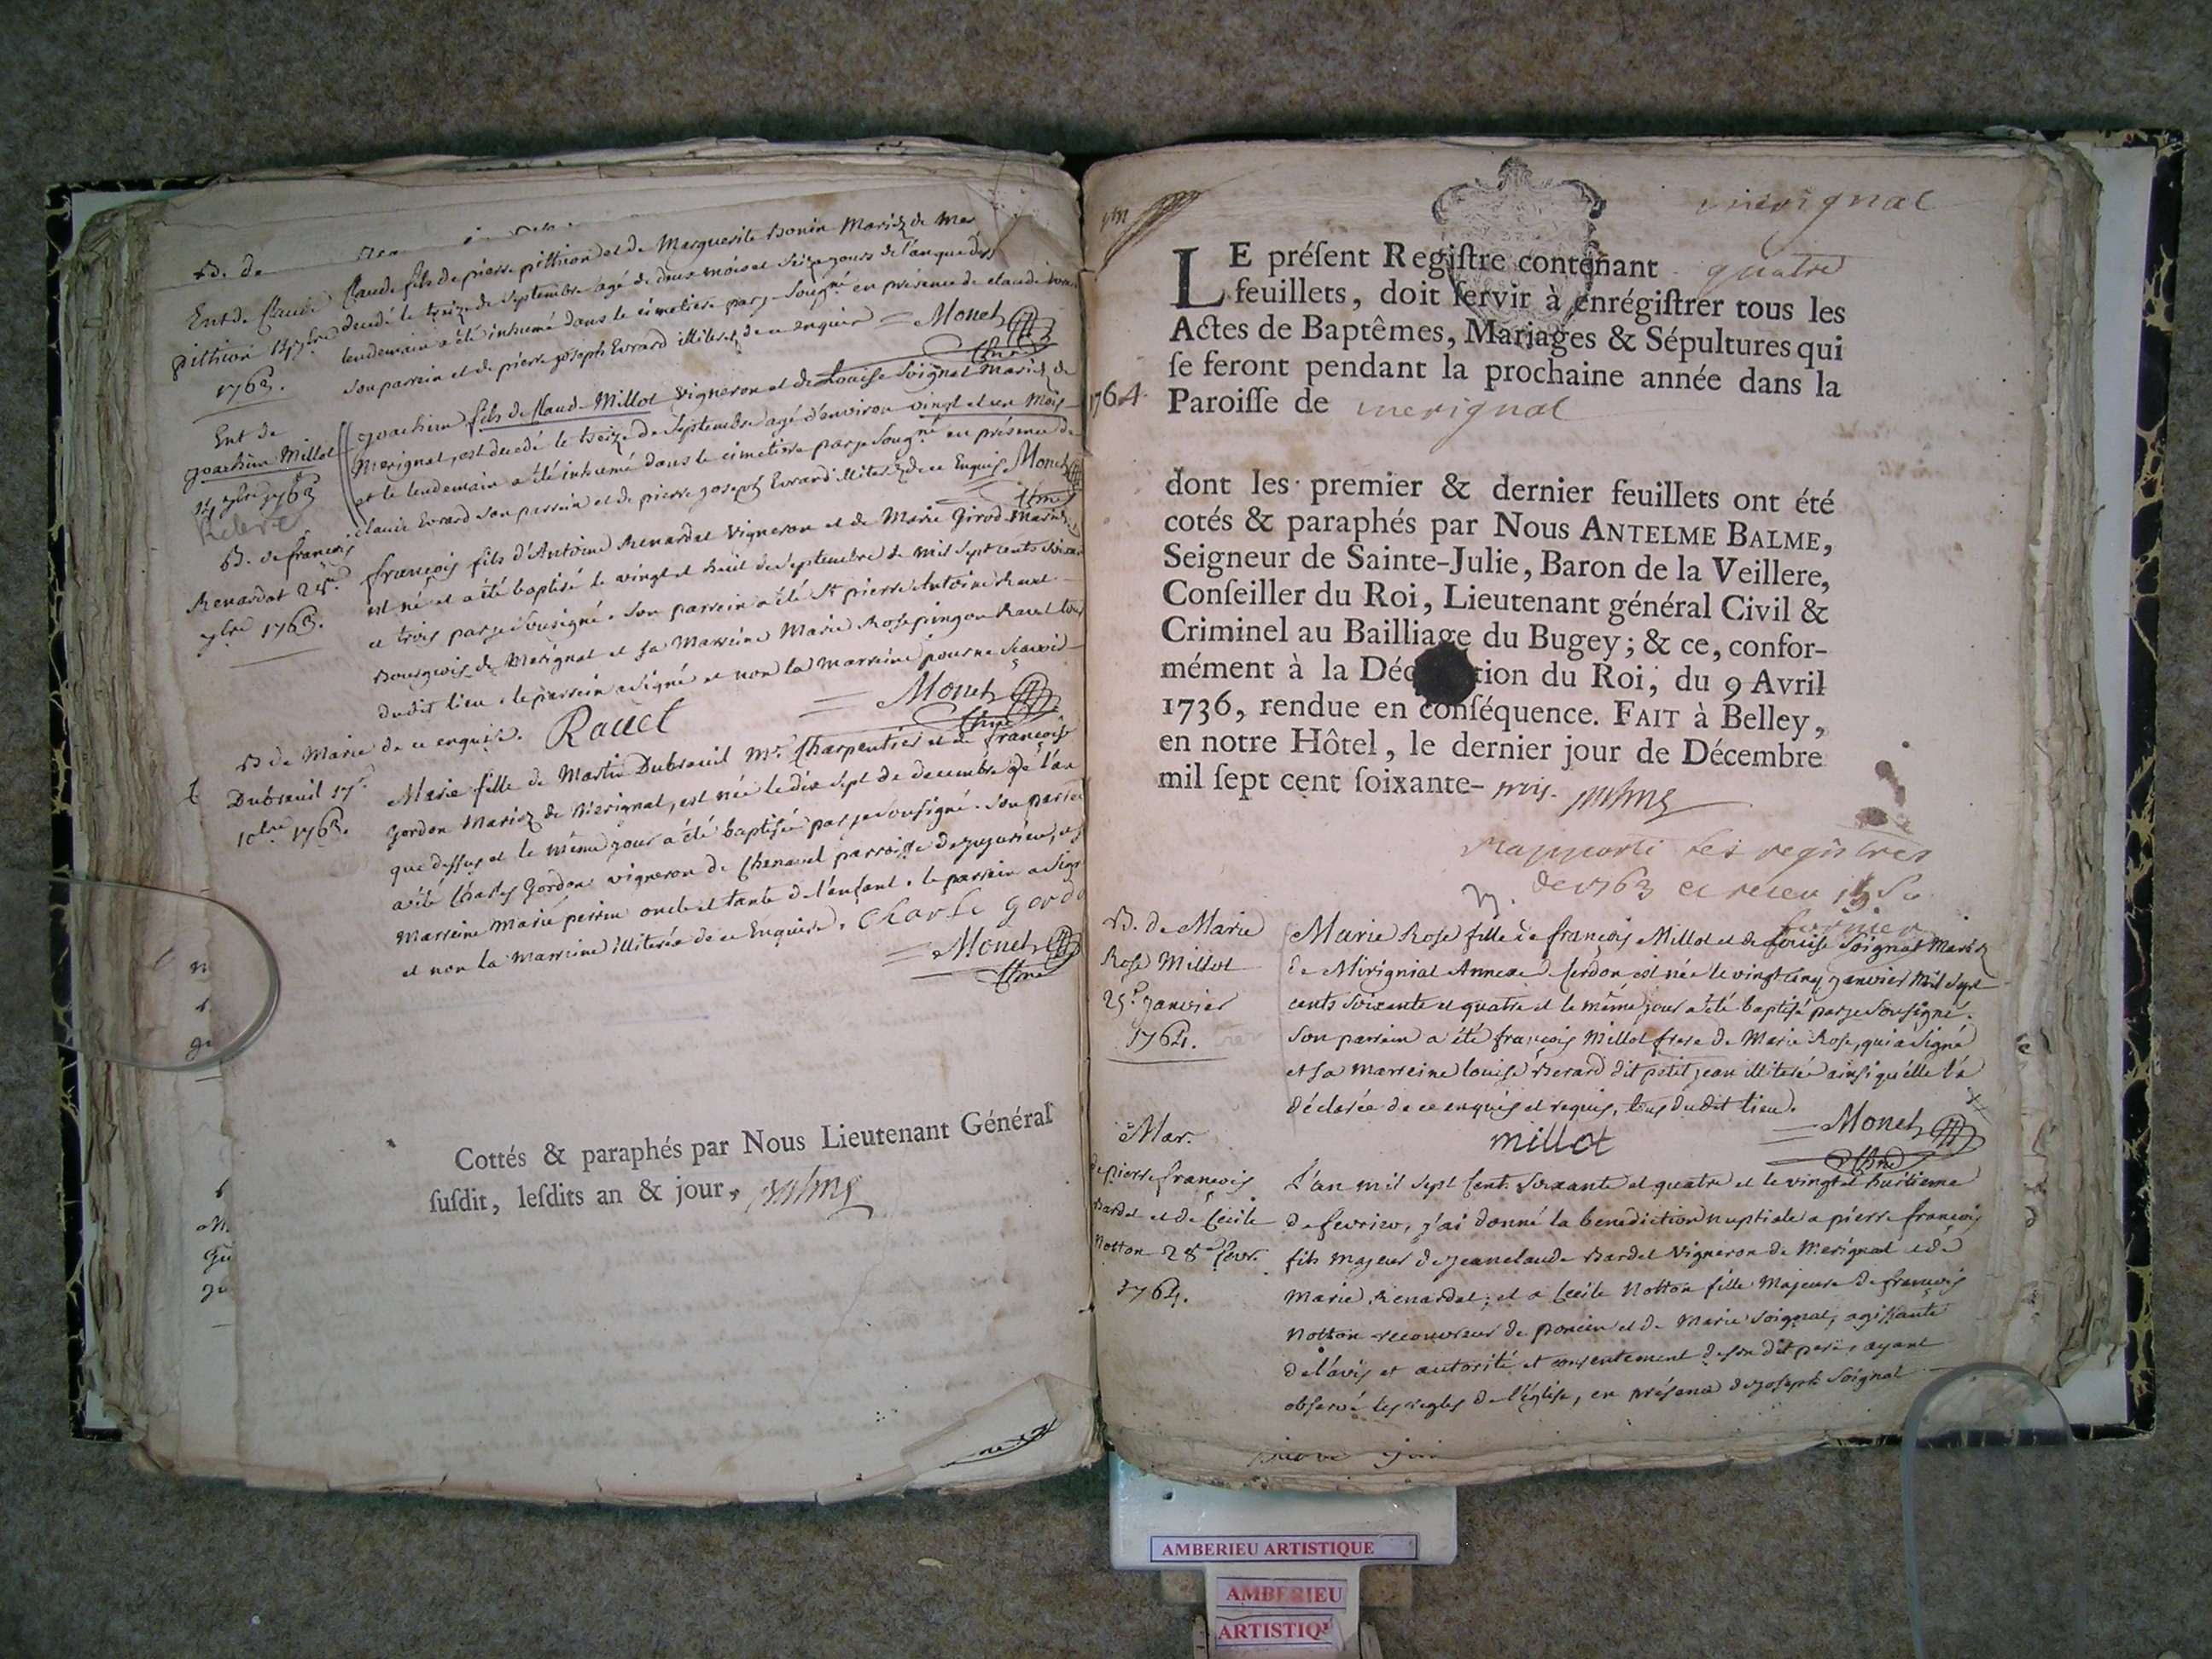 B. de
Ent de Claude
pithion 14 7bre
1763.
Claude fils de pierre pithion et de Marguerite Bonin Mariez de Mer
decedé le treize de Septembre agé de deux mois et seize jours de l'an que dess
lendemain a été inhumé dans le cimetiere par je sougné en présence de claude
son parrein et de pierre joseph Evrard illiterez de ce enquis = Monet
Cure
Ent de
joachim Millot
14 7bre 1763
joachim fils de Claude Millot vigneron et de Louise Soignat Mariez de
Merignat, est decedé le treize de Septembre agé d'environ vingt et un mois
et le lendemain a été inhumé dans le cimetiere par je sougné en présence de
claude Evrard son parrein et de pierre joseph Evrard illiterez de ce Enquis Monet
Cure
B. de françois
Renardat 28e
7bre 1763.
françois fils d'Antoine Renardat vigneron et de Marie Girod Mariez
est né et a été baptisé le vingt et huit de Septembre de mil sept cents soixan
et trois par je sousigné. son parrein a été Sr pierre Antoine Ravet
Bourgeois de Merignat et sa Marreine Marie Rose pingon Ravet tous
dudit lieu. le parrein a signé et non la marreine pour ne scavoir
de ce enquise. Ravet = Monet
Cure
B de Marie
Dubreuil 17e
10bre 1763.
Marie fille de Martin Dubreuil Me Charpentier et de françoise
Gordon Mariez de Merignat, est née le dix sept de decembre de l'an
que dessus et le même jour a été baptisée par je sousigné. son parrei
a été Charles Gordon vigneron de Chenavel parroisse de jujurieu, et
Marreine Marie perrin oncle et tante de l'enfant. le parrein a signé
et non la marreine illiterée de ce Enquise. Charle gordo
= Monet
Cure
Cottés & paraphés par Nous Lieutenant Général
ſuſdit, leſdits an & jour, Balme
merignat
LE préſent Regiſtre contenant quatre
feuillets, doit ſervir à enrégiſtrer tous les
Actes de Baptêmes, Mariages & Sépultures qui
ſe feront pendant la prochaine année dans la
1764 Paroiſſe de merignat
dont les premier & dernier feuillets ont été
cotés & paraphés par Nous ANTELME BALME,
Seigneur de Sainte-Julie, Baron de la Veillere,
Conſeiller du Roi, Lieutenant général Civil &
Criminel au Bailliage du Bugey; & ce, confor-
mément à la Déc tion du Roi, du 9 Avril
1736, rendue en conſéquence. FAIT à Belley,
en notre Hôtel, le dernier jour de Décembre
mil ſept cent ſoixante- trois. Balme
rapporté les registres
de 1763 et receu
B. de Marie
Rose Millot
25e janvier
1764.
Marie Rose fille de françois Millot et de Louise Soignat Mariez
de Mirignial Annexe de Cerdon est née le vingt cinq janvier mil sept
cents soixante et quatre et le même jour a été baptisé par je sousigné.
son parrein a été françois Millot frere de Marie Rose, qui a signé
et sa marreine louise Berard dit petit jean illiterée ainsi qu'elle l'a
déclarée de ce enquis et requis, tous dudit lieu.
millot = Monet
Cure
Mar.
de pierre françois
Bardet et de Cecile
Notton 28e fevr.
1764.
L'an mil sept Cent soixante et quatre et le vingt et huitieme
de fevrier, j'ai donné la benediction nuptiale a pierre françois
fils majeur de jeanclaude Bardet Vigneron de Merignat et de
Marie Renardat; et a Cecile Notton fille Majeure de françois
Notton recouvreur de poncin et de Marie Soignat, agissante
de l'avis et autorité et consentement de son dit pere, ayant
observé les regles de l'église, en présence de joseph Soignat
AMBERIEU ARTISTIQUE
AMBERIEU
ARTISTIQ